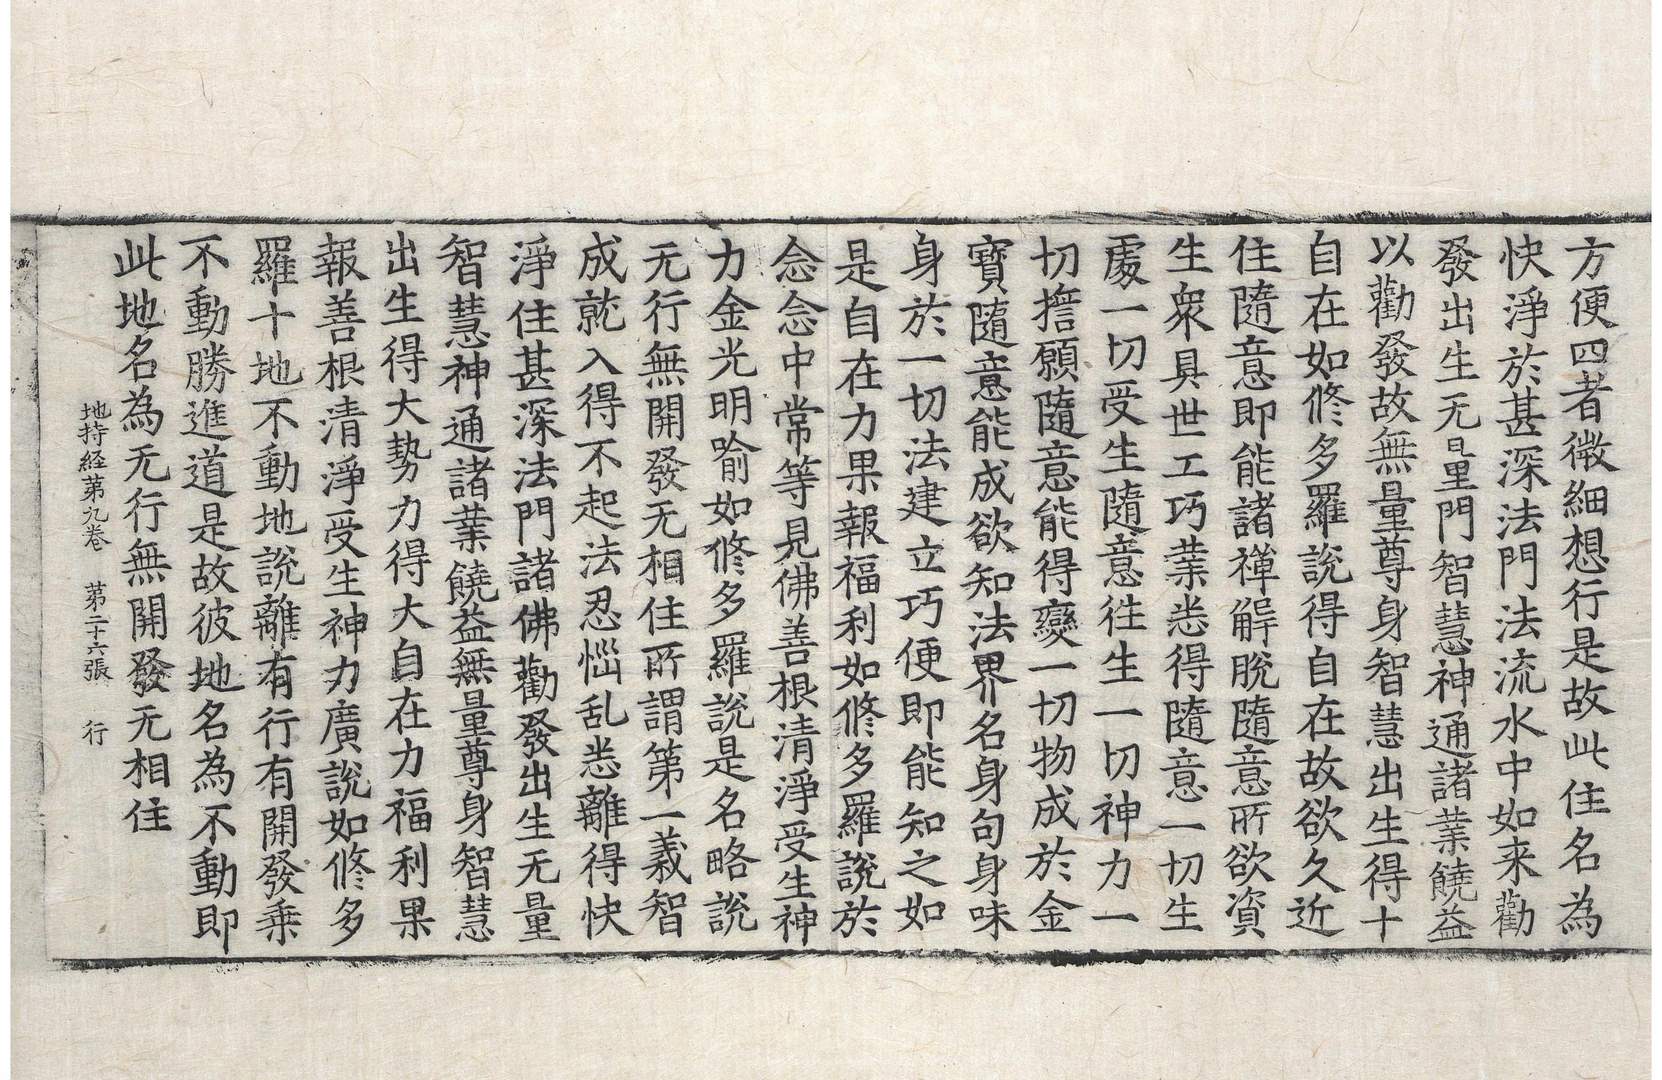 方便四者微細想行是故此住名為
快淨於甚深法門法流水中如来勸
發出生无量門智慧神通諸業饒益
以勸發故無量尊身智慧出生得十
自在如修多羅說得自在故欲久近
住隨意即能諸禪解脫隨意所欲資
生眾具世工巧業悉得隨意一切生
處一切受生隨意徃生一切神力一
切擔願隨意能得變一切物成於金
寶隨意能成欲知法界名身句身味
身於一切法建立巧便即能知之如
是自在力果報福利如修多羅說於
念念中常等見佛善根清淨受生神
力金光明喻如修多羅說是名略說
无行無開發无相住所謂第一義智
成就入得不起法忍惱乱悉離得快
淨住甚深法門諸佛勸發出生无量
智慧神通諸業饒益無量尊身智慧
出生得大勢力得大自在力福利果
報善根清淨受生神力廣說如修多
羅十地不動地說離有行有開發乗
不動勝進道是故彼地名為不動即
此地名為无行無開發无相住
地持経第九卷 第二十六張 行